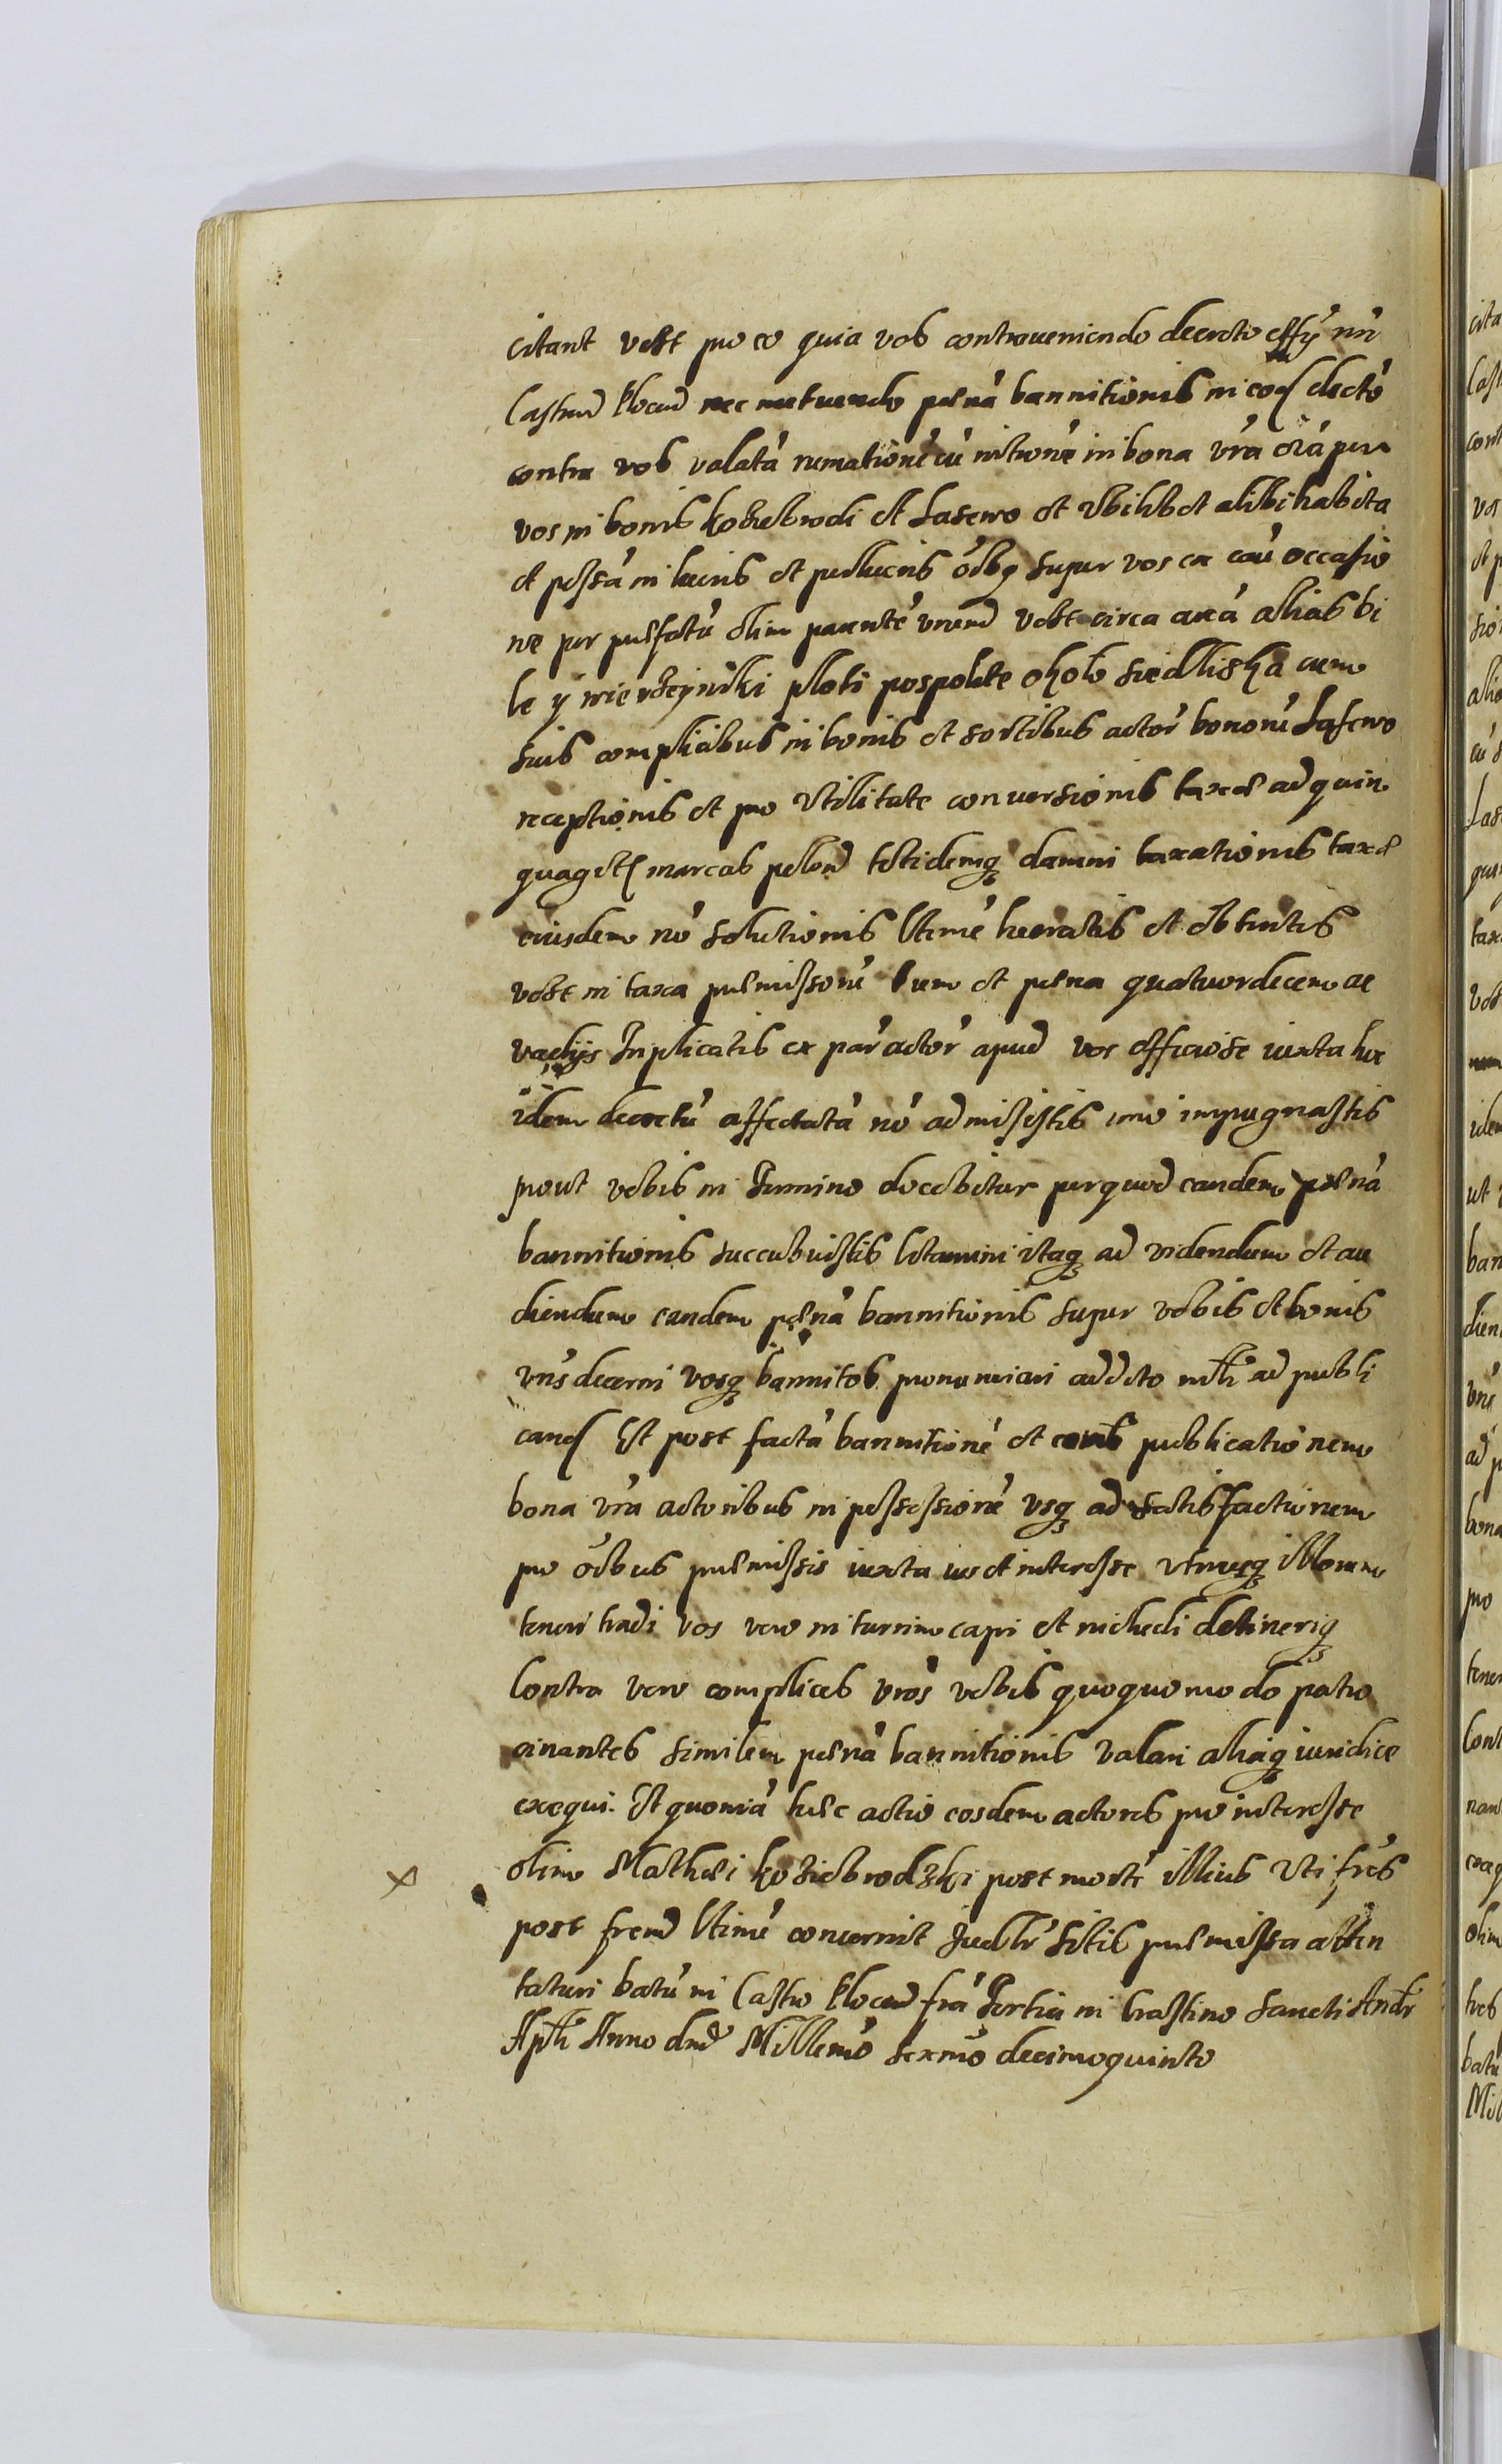 citant vobis pro eo quia vos contraveniendo decreto offÿ nri
Castren Plocen nec metuendo paenā bannitionis in eod decto
contra vos valatā rumationē cū intromē in bona vrā oīa per
vos in bonis Koziebrodi et Lasewo et ubilibet alibi habita
et possā in lucris et perlucris oībq super vos ea cau occasio
ne per praefatū olim parentē vrum vobis circa areā alias bi
le y pospolite około siedliska cum
suis complicibus in bonis et sortibus actor bonorū Lasewo
receptionis et pro Utilitate conversionis taxae ad quin
quaget marcas polon totidemq damni taxationis taxae
eiusdem nō solutionis Utimē lucratis et obtentis
vobis in taxa praemissorū cum et paena quatuordecem ac
vadijs Inplicatis ex par actor apud vos officiose iuxta hoc
idem decretū affectatā nō admisistis imo impugnastis
prout vobis in Termino docebitur per quod eandem paenā
bannitionis succubuistis Citamini itaq ad videndum et au
diendum eandem paenā bannitionis super vobis et bonis
vrīs decerni vosq bannitos pronunciari addito mrlī ad publi
cand Et post factā bannitionē et eius publicationem
bona vrā actoribus in possessionē usq ad satisfactionem
pro oībus praemissis iuxta ius et interesse utriusq illorum
teneri tradi vos vero in turrim capi et includi detineriq
Contra vero complices vros vobis quoquomodo patro
cinantes similem paenā bannitionis valari aliaq iuridice
exequi. Et quoniā haec actio eosdem actores pro interesse
olim Mathaei Koziebrodzki post mortē illius Uti frēs
post frem Utimē concernit Judlr sitis praemissa atten
taturi batū in Castro Plocen frā Tertia in Crastino Sancti Andr
Aplī Anno dnī Millemo sexmo decimoquinto